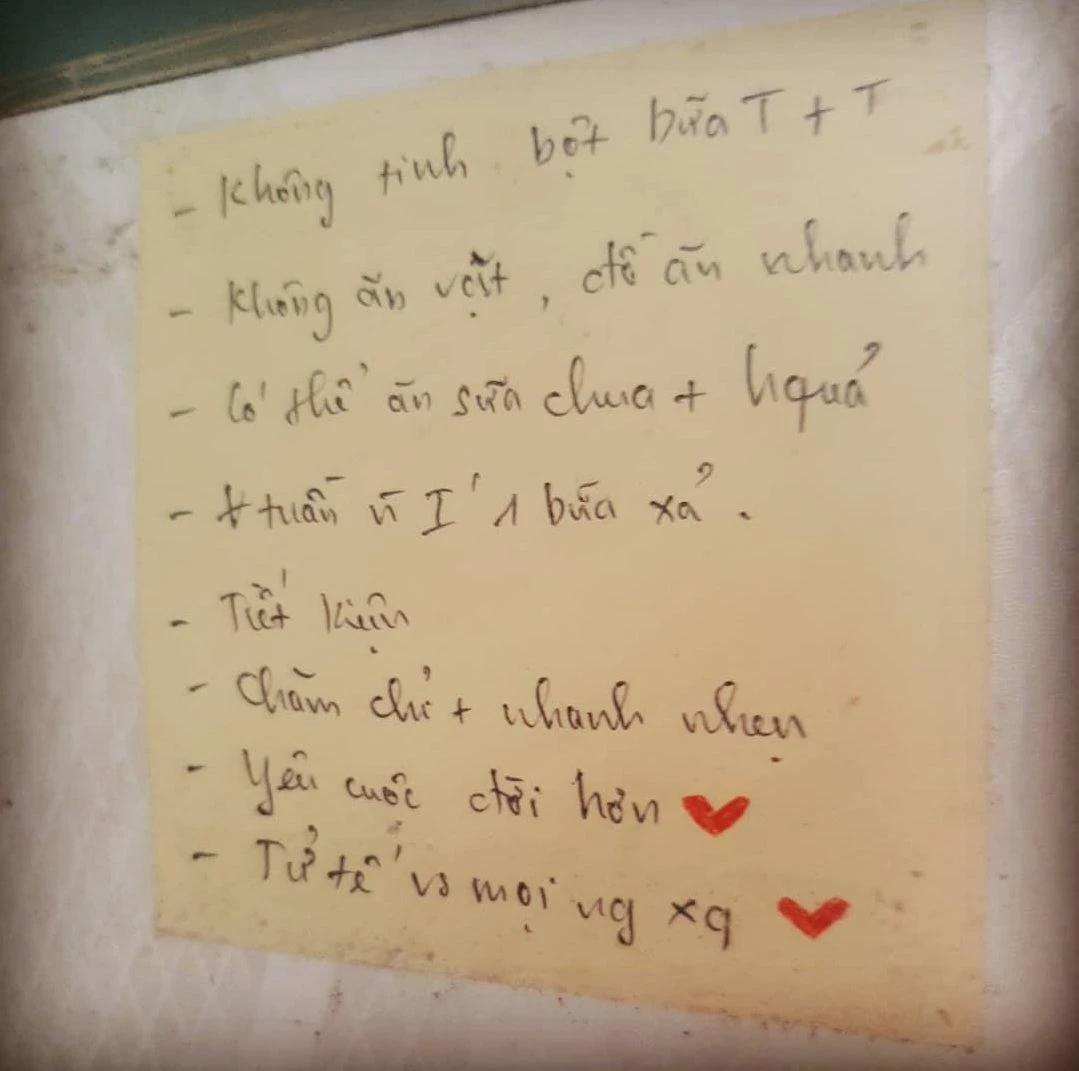 - Không tinh bột bữa T + T
- Không ăn vặt, đồ ăn nhanh
- Có thể ăn sữa chua + hquả
- tuần 1 bữa xả.
- Tiết kiệm
- Chăm chỉ + nhanh nhẹn
- Yêu cuộc đời hơn ❤
- Tử tế vs mọi ng xq ❤